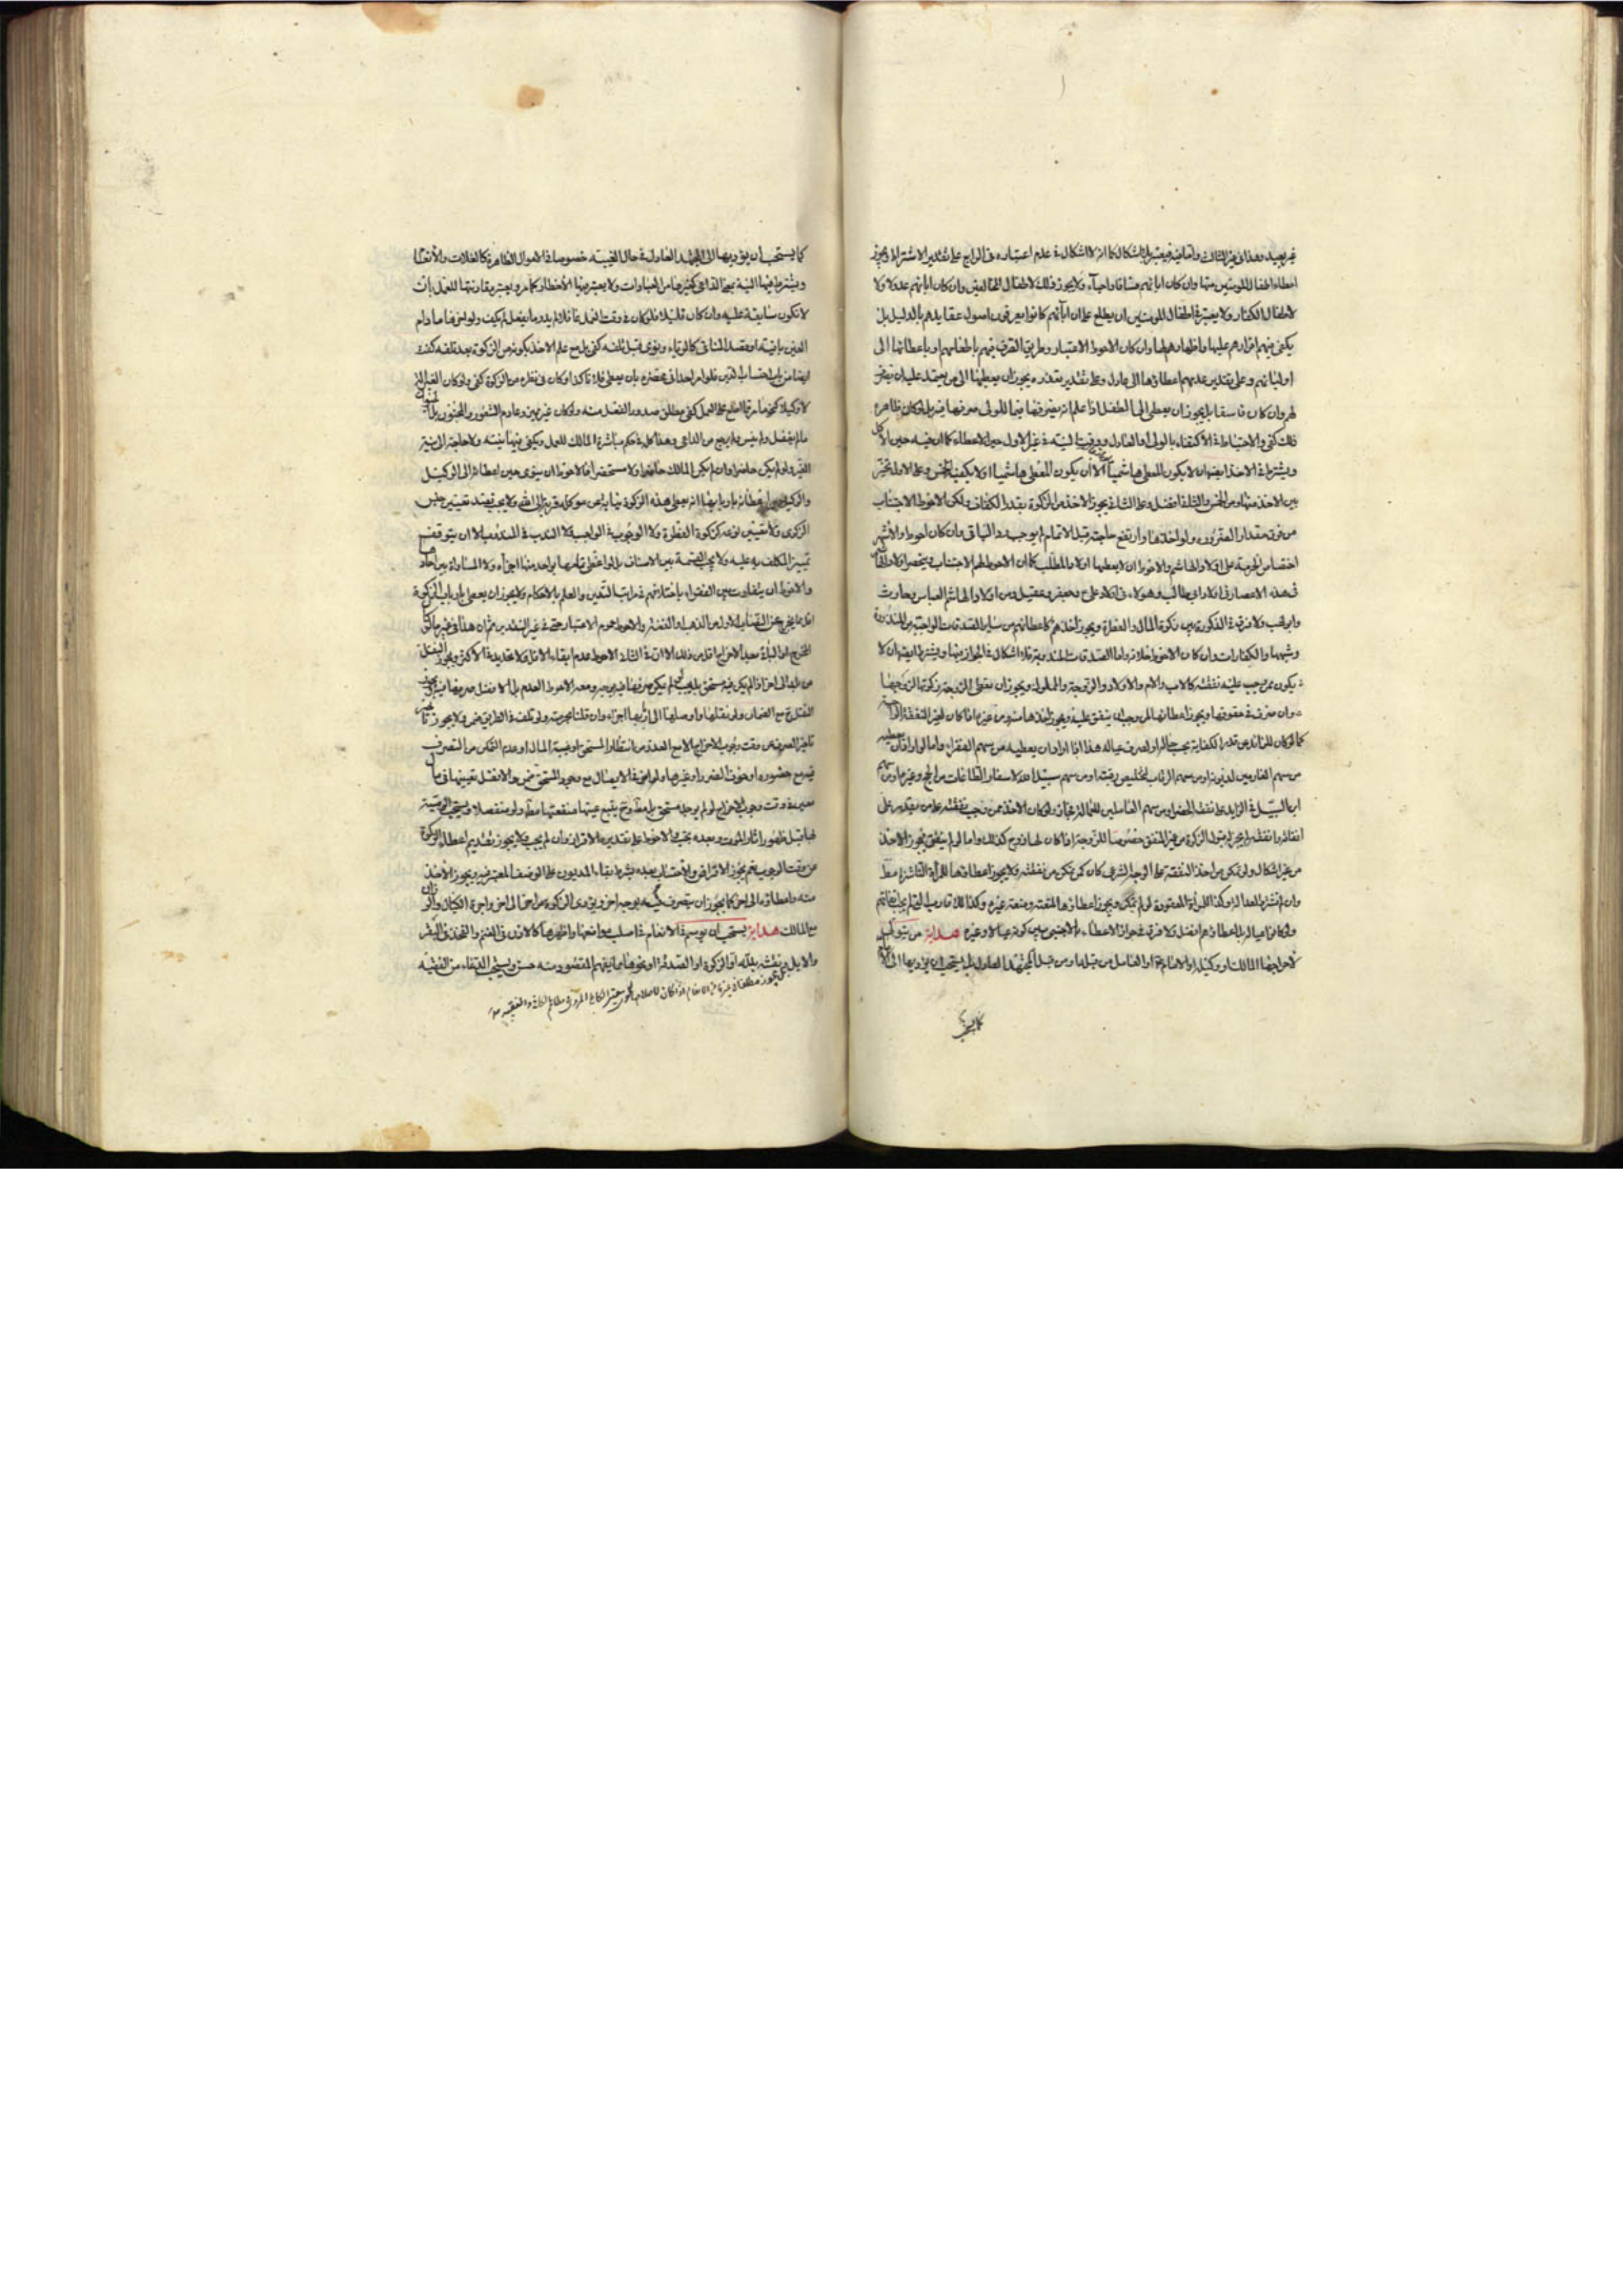 غير بعيد وهذا في غير الثالث واما فيه فيعتبر بلا اشكال كما انه لا اشكال في عدم اعتباره في الرابع على تقدير الاشتراط ويجوز
اعطاء اطفال المؤمنين منها وان كان ابائهم فساقا واحياء ولا يجوز ذلك لاطفال المخالفين وان كان ابائهم عدولا ولا
لاطفال الكفار ولا يعتبر في اطفال المؤمنين ان يطلع على ان ابائهم كانوا يعرفون اصول عقايدهم بالدليل بل
يكفي فيهم اقرارهم عليها واظهارهم لها وان كان الاحوط الاعتبار وطريق الصرف فيهم باطعامهم او باعطائها الى
اوليائهم وعلى تقدير عدمهم اعطاؤها الى عادل وعلى تقدير تعذره يجوز ان يعطيها الى من يعتمد عليه ان يصرف
لهم وان كان فاسقا بل يجوز ان يعطى الى الطفل اذا علم انه يصرفها فيما للولى صرفها فيه بل لو كان ظاهره
ذلك كفى والاحتياط في الاكتفاء بالولى او العادل ووقت النية في غير الاول حين الاعطاء كما ان فيه حين الاكل
ويشترط في الاخذ ايضا ان لا يكون هاشميا الا ان يكون المعطى هاشميا او لا يكفيه الخمس وعلى الاول تخير
بين الاخذ منها ومن الخمس والثاني افضل وعلى الثاني يجوز الاخذ من الزكوة بقدر الكفاف ولكن الاحوط الاجتناب
من فوق مقدار الضرورة ولو اخذها وارتفع حاجته قبل الاتمام لم يوجب رد الباقى وان كان احوط والاشهر
اختصاص الحرمة على اولاد الهاشم والاحوط ان لا يعطيها اولاد المطلب كما ان الاحوط لهم الاجتناب وينحصر اولاد الهاشم
في هذه الاعصار في اولاد ابي طالب وهولاء في اولاد على وجعفر وعقيل ومن اولاد الهاشم العباس وحارث
وابو لهب ولا فرق في الزكوة بين زكوة المال والفطرة ويجوز اخذهم كاعطائهم من ساير الصدقات الواجبة من المنذورة
وشبهها والكفارات وان كان الاحوط خلافه واما الصدقات المندوبة فلا اشكال في الجواز فيها ويشترط ايضا ان لا
يكون ممن يجب عليه نفقته كالاب والام والاولاد والزوجة والمملوك ويجوز ان تعطى الزوجة زكوتها لزوجها
وان صرف في حقوقها ويجوز اعطائها لمن وجب ان ينفق عليه ويجوز اخذها منه ومن غيره اذا كان لغير النفقة الواجبة
كما لو كان للزائد عن قدر الكفاية يجب عليه او لصرف عياله هذا اذا اراد ان يعطيه من سهم الفقراء واما لو اراد ان يعطيه
من سهم الغارمين لديونه او من سهم الرقاب لتخليص رقبته او من سهم سبيل الله لاسفار الطاعات من الحج وغيره او من سهم
ابن السبيل في الزايد على نفقة الحضر او من سهم العاملين للعمالة جاز ولو كان الاخذ ممن وجب نفقته على من يقدر على
انفاقه وانفقه لم يجز له قبول الزكوة من غير المنفق خصوصا للزوجة اذا كان لها زوج كذلك واما لو لم ينفق فيجوز الاخذ
من غير اشكال ولو تمكن من اخذ النفقة على الوجه الشرعى كان كمن تمكن من نفقته ولا يجوز اعطاؤها للمرأة الناشزة مط
وان لم تنشز للعدالة وكذا المرأة المعقودة لو لم تمكن ويجوز اعطاؤها المتمتعة ومتعة غيره وكذلك اقارب الذين لم يجب نفقاتهم
ولو كانوا عياله بل اعطاؤهم افضل ولا فرق في جواز الاعطاء بالاجنبى بين كونه عيالا وغيره هداية من يتولى
لاخراجها المالك او وكيله او الامام او العامل من قبله او من قبل المجتهد العادل بل يستحب ان يؤديها الى الامام
كما يستحب
كما يستحب ان يؤديها الى المجتهد العادل في حال الغيبة خصوصا في الاموال الظاهرة كالغلات والانعام
ويشترط فيها النية بمعنى الداعى كغيرها من العبادات ولا يعتبر فيها الاخطار كما مر ويعتبر مقارنتها للعمل بان
لا تكون سابقة عليه وان كان قليلا فلو كان في وقت العمل غافلا لم يدر ما يفعل لم يكف ولو اخرها ما دام
العين باقية او قصد المنافى كالرياء ونوى قبل تلفه كفى بل مع علم الاخذ بكونه من الزكوة بعد تلفه كفت
ايضا من باب احتساب الدين فلو امر احدا في محضره بان يعطى فلانا كذا وكان في نظره من الزكوة كفى ولو كان القبل الذى
لا وكيلا كفى ما مر في المطلع على العمل كفى مطلق صدور الفعل منه ولو كان غير مميز وعادم الشعور والمجنون بل السكران
ما لم يغفل ولم ينس ولم يرجع من الداعى وهذا كله في حكم مباشرة المالك للعمل ويكفى فيها نيته ولا حاجة الى نية
الغير ولو لم يكن حاضرا وان لم يكن المالك حاضرا ولا مستحضرا فالاحوط ان ينوى حين اعطائه الى الوكيل
والوكيل حين اعطائه باربابها انه يعطى هذه الزكوة نيابة عن موكله قربة الى الله ولا يجب قصد تعيين جنس
الزكوى ولا تعيين نوعه كزكوة الفطرة ولا الوجوب في الواجب ولا الندب في المندوب الا ان يتوقف
تمييز المكلف به عليه ولا يجب القسمة بين الاصناف بل لو اعطى تمامها بواحد منها اجزأه ولا المساواة بين احاد صنف
والاحوط ان يتفاوت بين الفقراء باختلافهم في مراتب التدين والعلم بالاحكام ولا يجوز ان يعطى بارباب الزكوة
اقل مما يخرج عن النصاب الاول من الذهب او الفضة والاحوط عموم الاعتبار حتى في غير النقدين ثم ان هذا في غير ما لو كان
المخرج او الباقى بعد الاخراج اقل من ذلك الا ان في الثانى الاحوط عدم ابقاء الاقل ولا تحديد في الاكثر ويجوز النقل
من بلد الى اخر اذا لم يكن فيه مستحق بل يجب لو لم يكن صرفها فيه بوجه ومعه الاحوط العدم بل الافضل صرفها فيه ويجوز
النقل ح مع الضمان ولو نقلها واوصلها الى اربابها اجزأه وان قلنا بحرمته ولو تلفت في الطريق ضمن ولا يجوز تأخير
تاخير الصرف عن وقت وجوب الاخراج الا مع العذر من انتظار المستحق او غيبة المال او عدم التمكن من التصرف
فيه مع حضوره او خوف الضرر او غيرها ولو اخر في الايصال مع وجود المستحق ضمن والافضل تعيينها في مال
معين في وقت وجوب الاخراج لو لم يوجد مستحق بل مط وح يتبع عينها منفعتها مط ولو منفصلا ويستحب الوصية
لها قبل ظهور اثار الموت وبعده يجب على الاحوط على تقدير عدم الاقرار وان لم يجب ولا يجوز تقديم اعطاء الزكوة
عن وقت الوجوب نعم يجوز الاقراض والاحتساب بعده بشرط بقاء المديون على الوصف المعتبر فيه ويجوز الاخذ
منه واعطاؤه الى اخر كما يجوز ان يتصرف فيه بوجه اخر ويؤدى الزكوة من اخر الى اخر واجرة الكيال والوزان
مع المالك هداية يستحب ان يوسم في الانعام في اصلب مواضعها واظهرها كالاذن في الغنم والفخذ في البقر
والابل ونقشه بلله او الزكوة او الصدقة او نحوها مما يفهم المقصود منه حسن ويستحب الدعاء من الفقيه